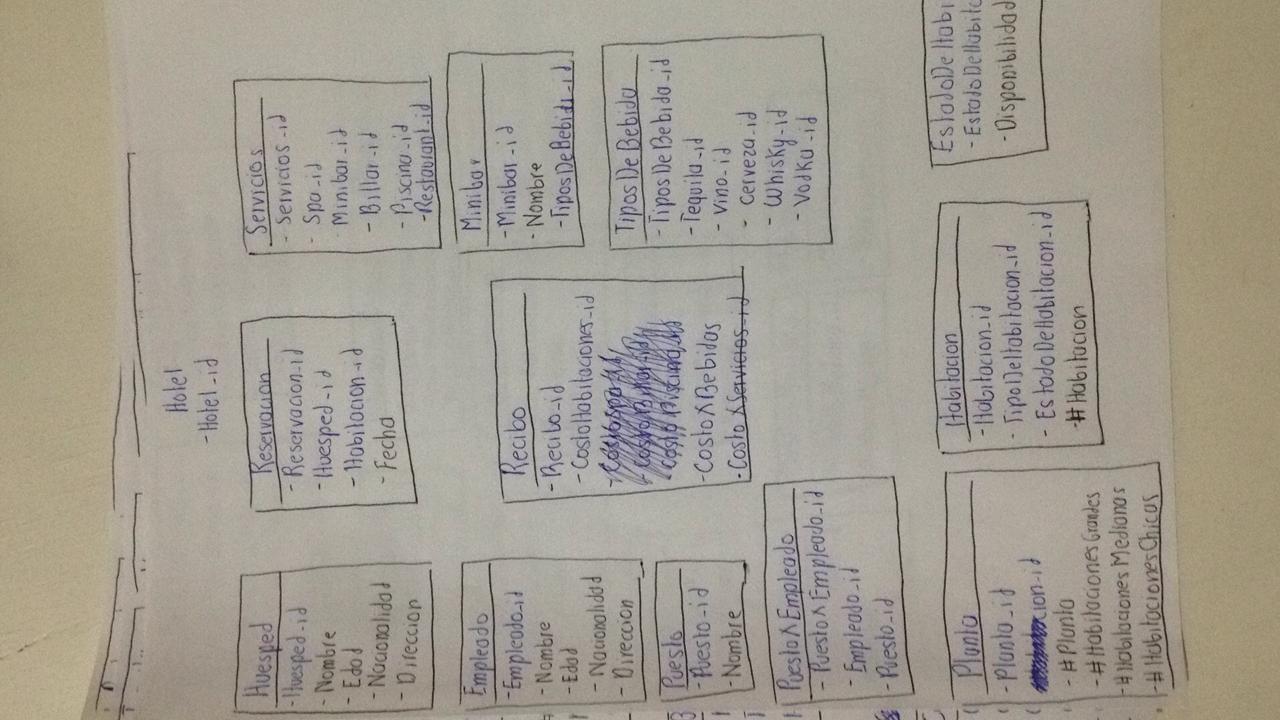 Hotel
- Hotel_id
Huesped
- Huesped_id
- Nombre
- Edad
- Nacionalidad
- Direccion
Reservacion
- Reservacion_id
- Huesped_id
- Habitacion_id
- Fecha
Servicios
- Servicios_id
- Spa_id
- Minibar_id
- Billar_id
- Piscina_id
- Restaurant_id
Empleado
- Empleado_id
- Nombre
- Edad
- Nacionalidad
- Direccion
Recibo
- Recibo_id
- CostoHabitaciones_id
- CostoXBebidas
- CostoXServicios_id
Minibar
- Minibar_id
- Nombre
- TiposDeBebida_id
Puesto
- Puesto_id
- Nombre
TiposDeBebida
- TiposDeBebida_id
- Tequila_id
- Vino_id
- Cerveza_id
- Whisky_id
- Vodka_id
PuestoXEmpleado
- PuestoXEmpleado_id
- Empleado_id
- Puesto_id
Planta
- Planta_id
- #Planta
- #HabitacionesGrandes
- #HabitacionesMedianas
- #HabitacionesChicas
Habitacion
- Habitacion_id
- TipoDeHabitacion_id
- EstadoDeHabitacion_id
- #Habitacion
EstadoDeHabi
- EstadoDeHabita
- Disponibilidad